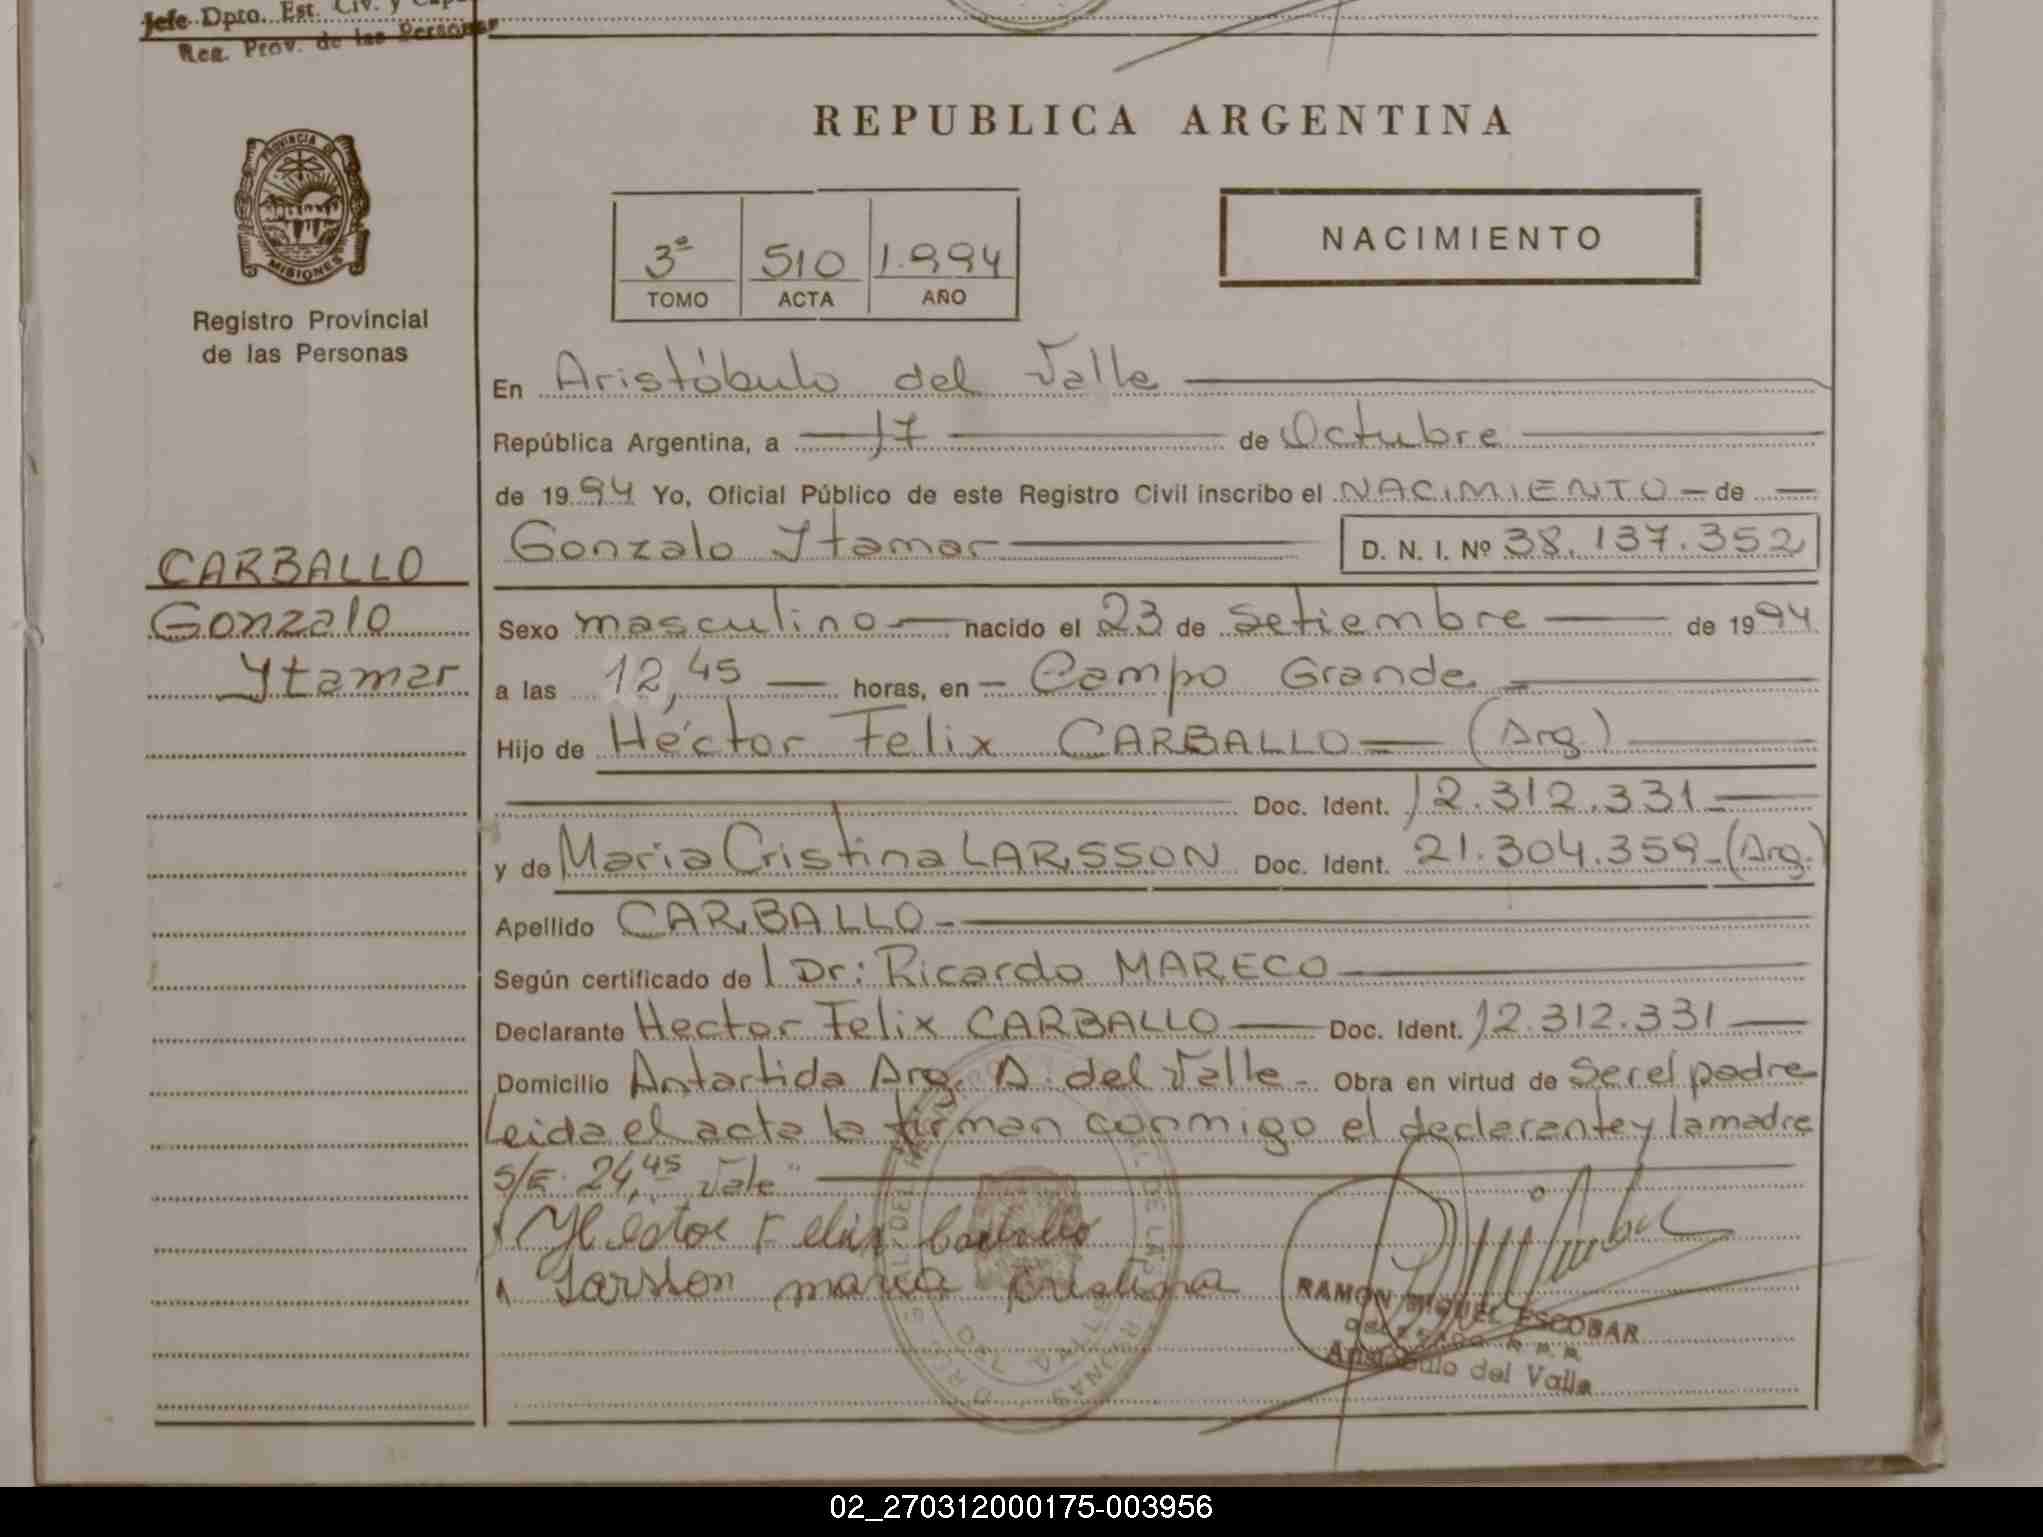 Jefe Dpto. Est. Civ. y Cap
Reg. Prov. de las Personas
REPUBLICA ARGENTINA
PROVINCIA DE
MISIONES
Registro Provincial
de las Personas
3º 510 1.994
TOMO ACTA AÑO
NACIMIENTO
En Aristóbulo del Valle
República Argentina, a 17 de Octubre
de 1994 Yo, Oficial Público de este Registro Civil inscribo el NACIMIENTO de
Gonzalo Ytamar D. N. I. Nº 38.137.352
CARBALLO
Gonzalo
Ytamar
Sexo masculino nacido el 23 de Setiembre de 1994
a las 12,45 horas, en Campo Grande
Hijo de Héctor Felix CARBALLO (Arg.)
Doc. Ident. 12.312.331
y de Maria Cristina LARSSON Doc. Ident. 21.304.359 (Arg.)
Apellido CARBALLO
Según certificado de l Dr: Ricardo MARECO
Declarante Hector Felix CARBALLO Doc. Ident. 12.312.331
Domicilio Antartida Arg. A. del Valle Obra en virtud de Ser el padre
Leida el acta la firman conmigo el declarante y la madre
S/E. 24,45 Vale"
Héctor Felix Carballo
Larsson maria Cristina
RAMON MIGUEL ESCOBAR
Aristóbulo del Valle
02_270312000175-003956